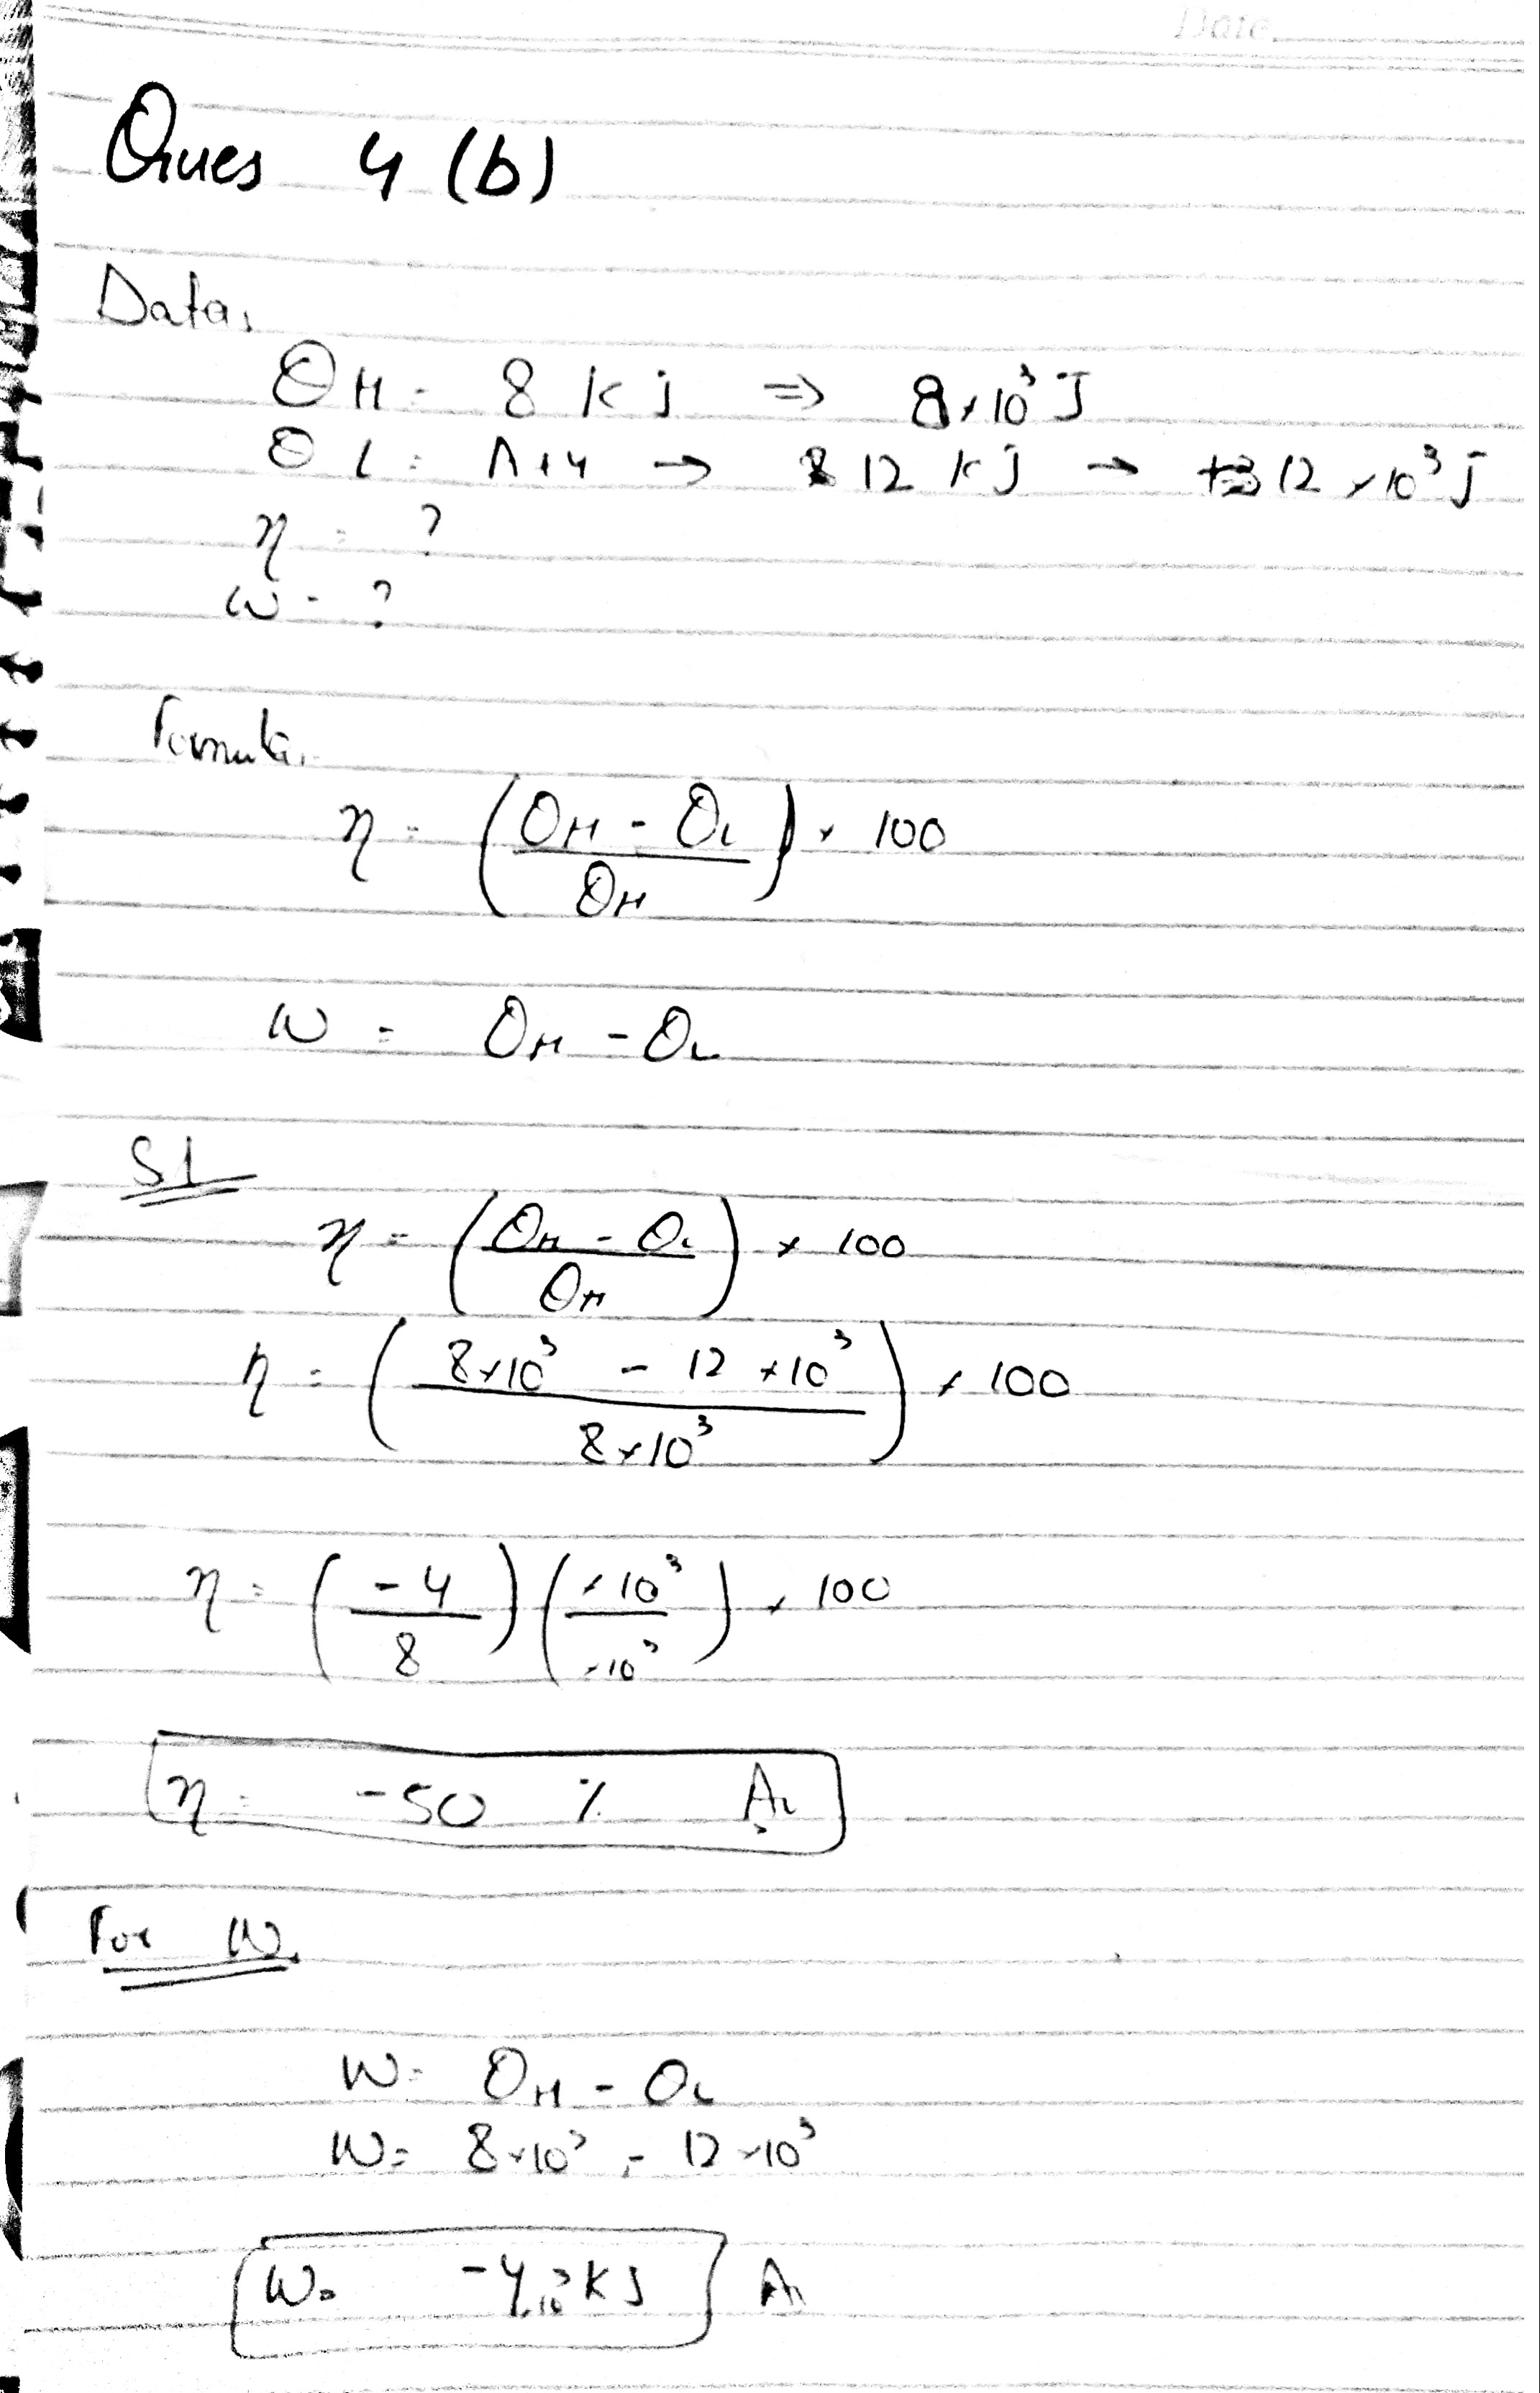 Date
Ques 4 (b)
Data,
QH = 8 kj ⇒ 8×10³ J
QL = A+4 → 12 kJ → 12 ×10³ J
η = ?
W = ?
Formula,
η = (QH - QL / QH) × 100
W = QH - QL
Sl
η = (QH - QL / QH) × 100
η = (8×10³ - 12 ×10³ / 8×10³) × 100
η = (-4 / 8) (×10³ / ×10³) × 100
η = -50 % A
For W,
W = QH - QL
W = 8×10³ - 12×10³
W = -4×10³ KJ A